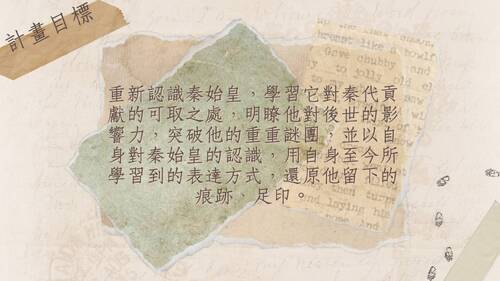 計畫目標
breast like a bowlf
Gave chubby and
to my jolly old el
重新認識秦始皇，學習它對秦代貢
獻的可取之處，明瞭他對後世的影
響力，突破他的重重謎團，並以自
身對秦始皇的認識，用自身至今所
學習到的表達方式，還原他留下的
痕跡，足印。
then turn
and laying his